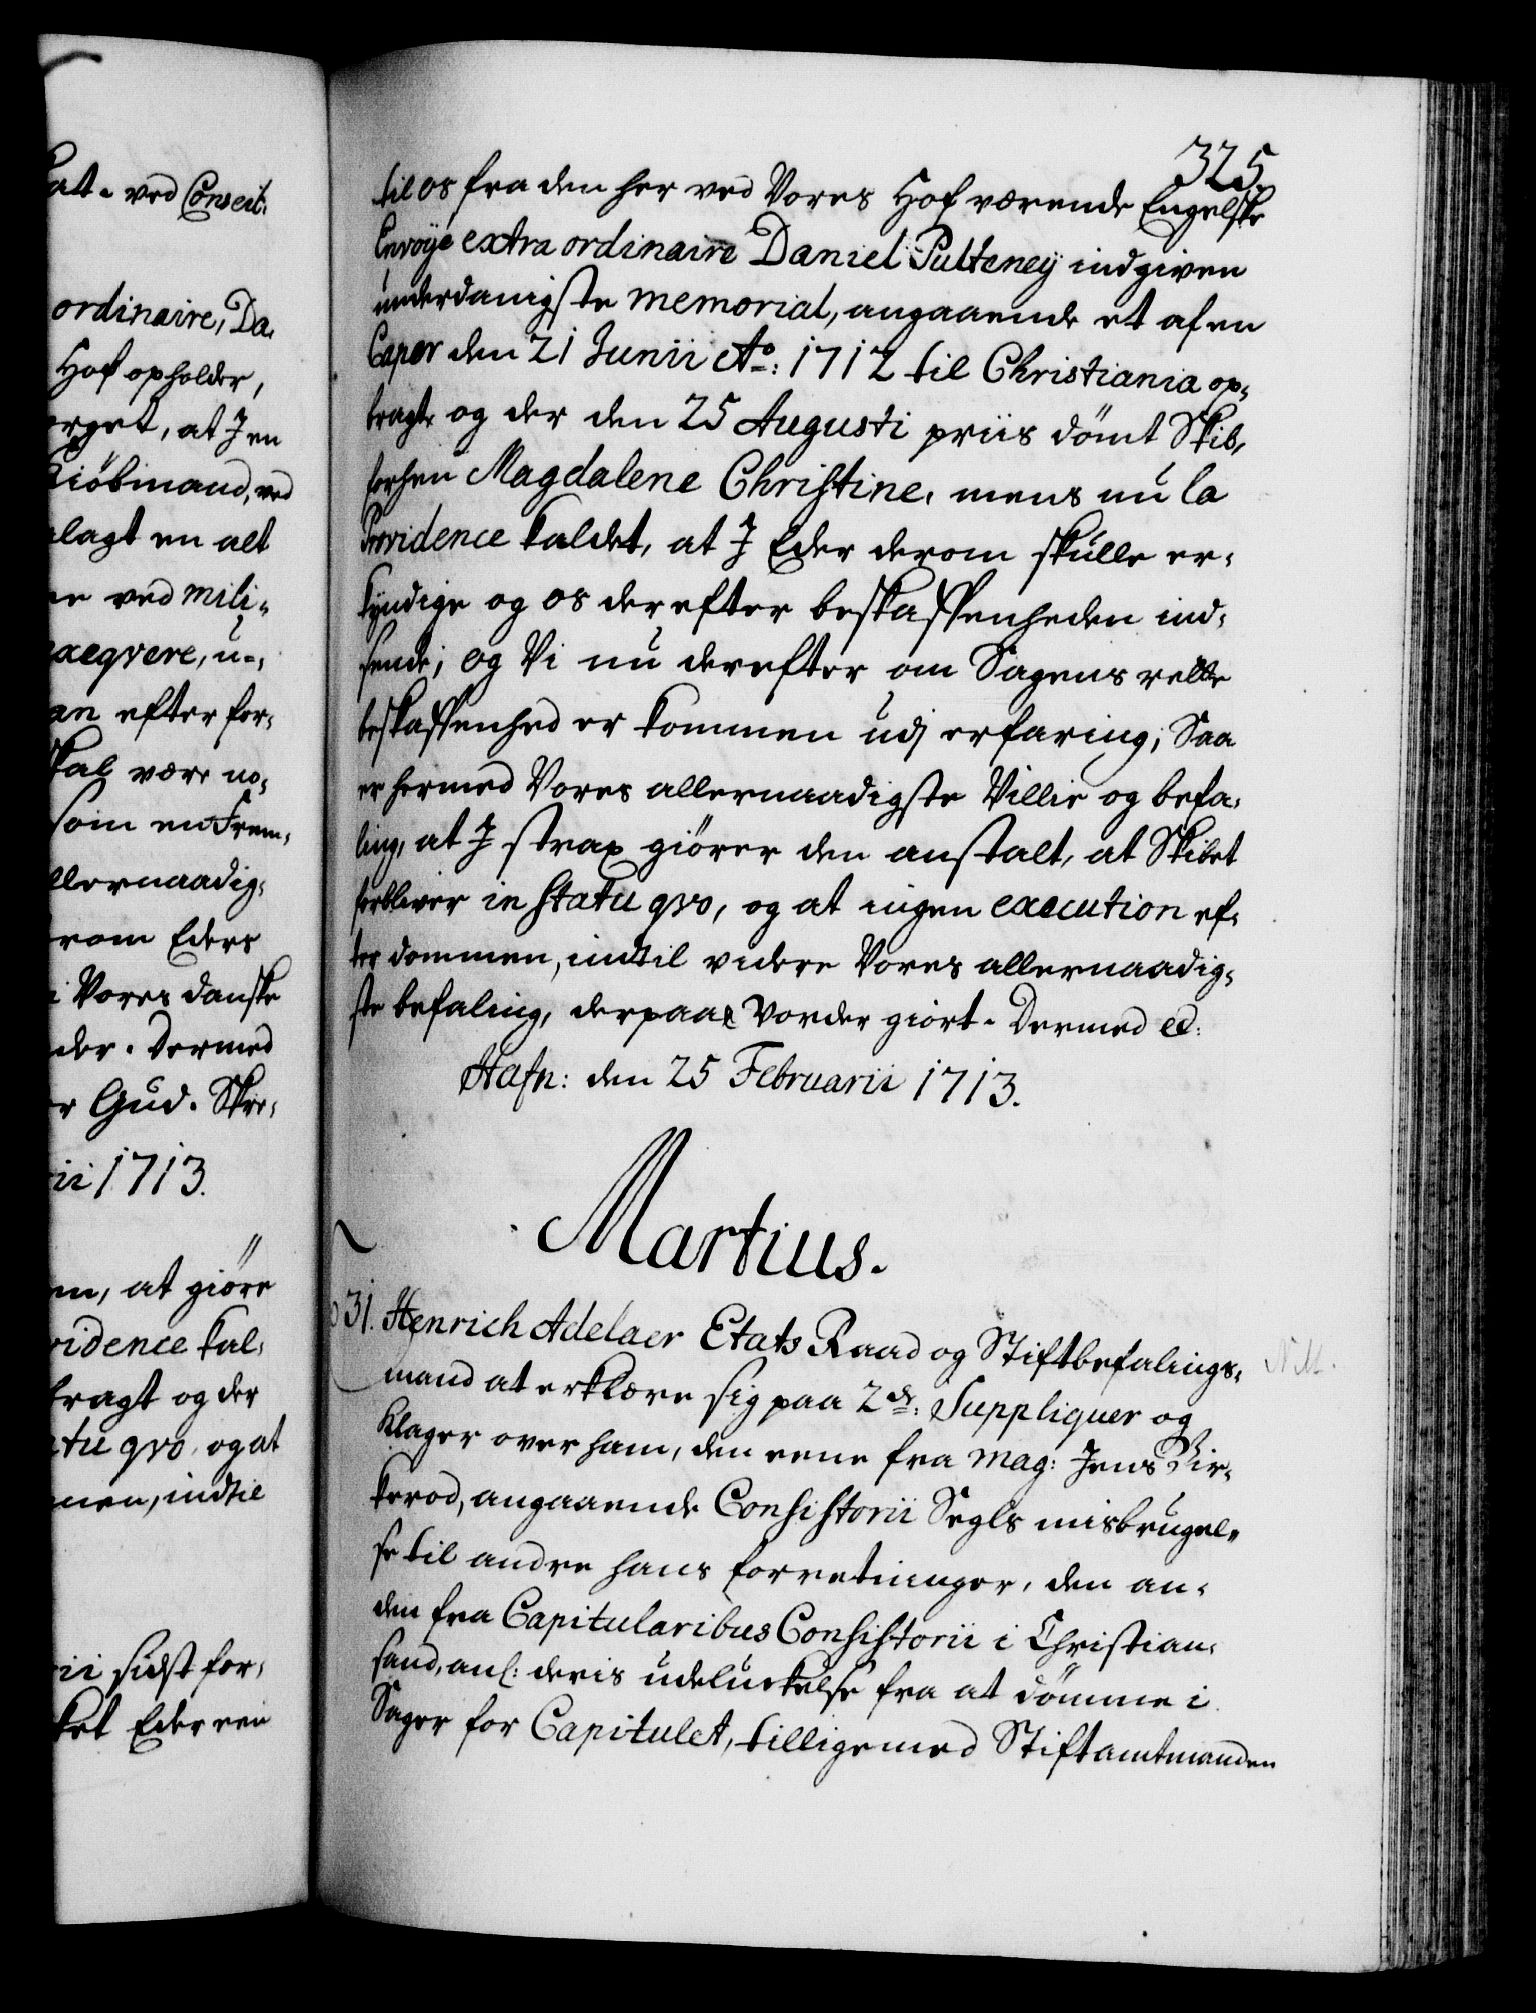 att. ved Conseit:
ordinaire, Da,
Hof opholder,
orget, at J en
Kiöbmand, ved
lagt en alt
ne ved mili-
xeqvere, u-
an efter for-
skal være no-
som en Frem-
llernaadig-
rom Eders
i Vores danske
der. Dermed
r Gud. Skre-
ii 1713.
en, at giöre
vidence kal-
bragt og der
tu qvo, og at
men, indtil
ii sidst for-
ket Eder een
325.
til os fra den her ved Vores Hof værende Engelske
Envoÿe extra ordinaire Daniel Pulteneÿ indgiven
underdanigste memorial, angaaende et af en
Caper den 21 Junii Ao: 1712 til Christiania op-
bragt og der den 25 Augusti priis dömt Skib,
forhen Magdalene Christine, mens nu la
Providence kaldet, at J Eder derom skulle er-
kyndige og os derefter beskaffenheden ind-
sende; og Vi nu derefter om Sagens rette
beskaffenhed er kommen udj erfaring; Saa
er hermed Vores allernaadigste Villie og befa-
ling, at J strax giörer den anstalt, at Skibet
forbliver in statu qvo, og at ingen execution ef-
ter dommen, indtil videre Vores allernaadig-
ste befaling, derpaa vorder giort. Dermed etc:
Hafn: den 25 Februarii 1713.
Martius.
31. Henrich Adelaer Etats Raad og Stiftbefalings-
mand at erklære sig paa 2de: Suppliquer og
Klager over ham, den eene fra Mag: Jens Bir-
kerod, angaaende Consistorii Segls misbrugel-
se til andre hans forretninger, den an-
den fra Capitularibus Consistorii i Christian-
sand, anl: deris udeluckelse fra at dömme i
Sager for Capitulet, tilligemed Stiftamtmanden